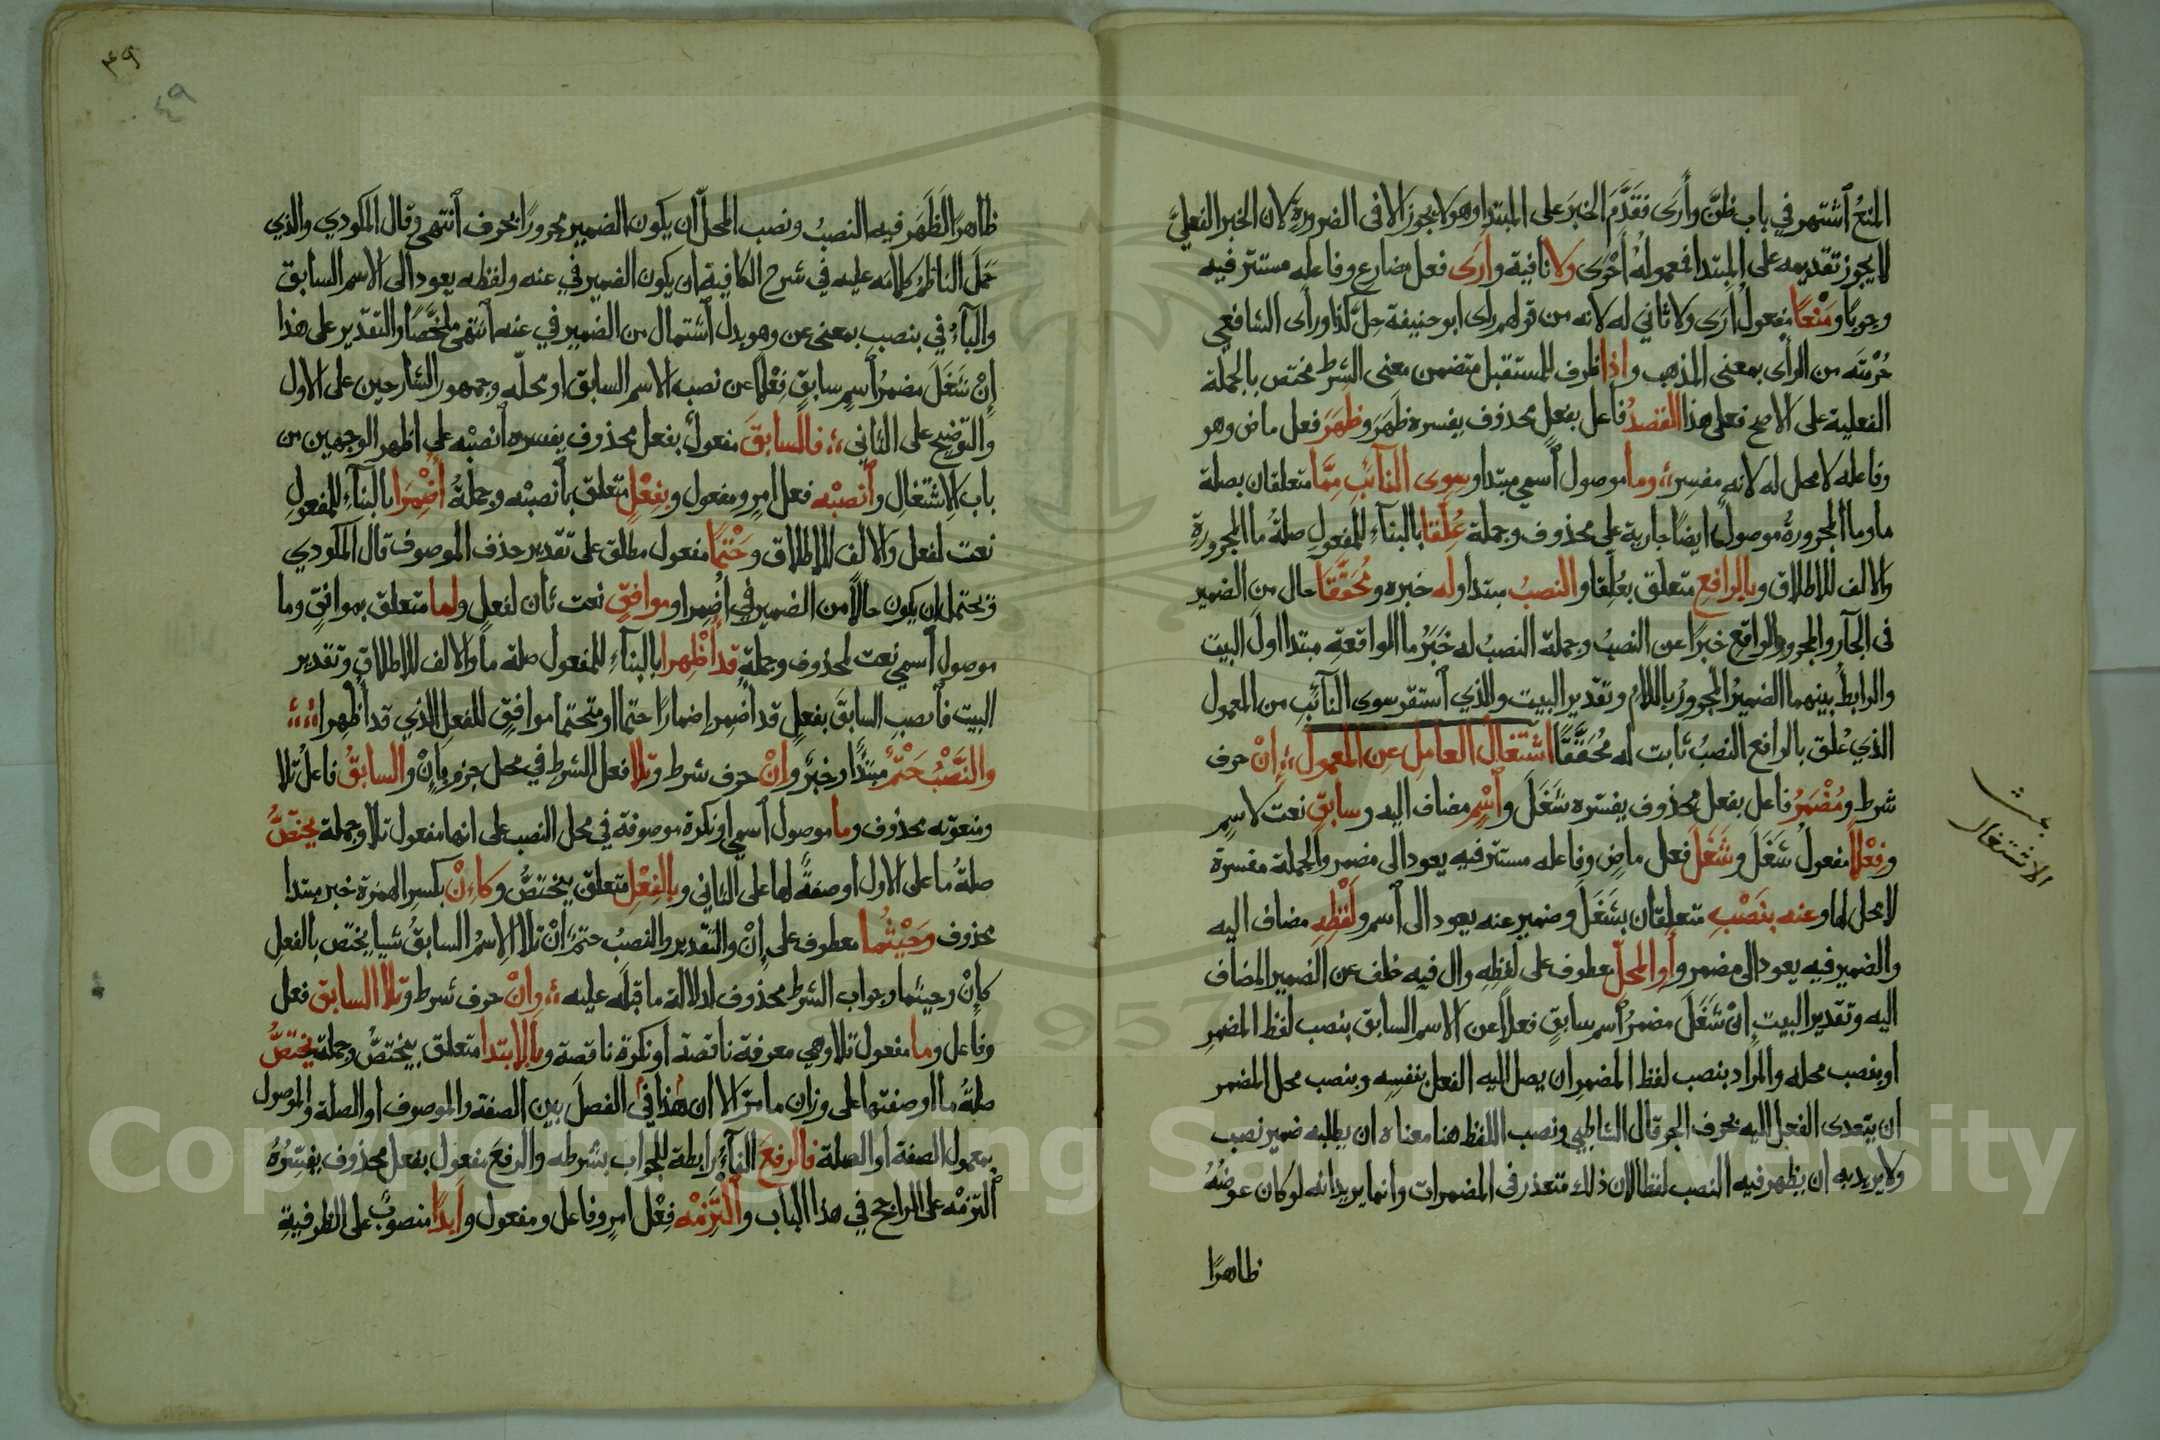 المنعُ اشتهر في باب ظنّ وأرى فقدّم الخبر على المبتدا وهو لا يجوز الا في الضرورة لان الخبر الفعليّ
لا يجوز تقديمه على المبتدا فمعموله أحْرى ولا نافية وأرى فعل مضارع وفاعله مستتر فيه
وجوبًا ومَنْعًا مفعول أرى ولا ثاني له لانه من قولهم رأى ابو حنيفة حِلّ كذا ورأى الشافعي
حُرْمتَه من الرأى بمعنى المذهب واذا ظرف للمستقبل متضمن معنى الشرط مختص بالجملة
الفعلية على الاصح فعلى هذا القصدُ فاعل بفعل محذوف يفسره ظَهَرَ وظَهَرَ فعل ماض وهو
وفاعله لا محل له لانه مفسر وما موصول اسمي مبتدا وسِوى النآئبِ مِمَّا متعلقان بصلة
ما وما المجرورةُ موصول ايضًا جارية على محذوف وجملة عُلِّقا بالبنآء للمفعول صلةُ ما المجرورةِ
والالف للاطلاق وبالرافع متعلق بعُلِّقا والنصبُ مبتدا وله خبره ومُحَقَّقًا حال من الضمير
فى الجآر والمجرور الواقع خبرًا عن النصبُ وجملة النصبُ له خَبَرُ ما الواقعةِ مبتدا اول البيت
والرابطُ بينهما الضميرُ المجرورُ باللام وتقدير البيت والذي استقر سوى النآئبِ من المعمول
الذي عُلق بالرافع النصبُ ثابت له مُحَقَّقًا اشتغال العامل عن المعمول إنْ حرف
شرط ومُضْمَرُ فاعل بفعل محذوف يفسّره شَغَلَ واسْمٍ مضاف اليه وسابقٍ نعت لاسم
وفِعْلًا مفعولُ شَغَلَ وشَغَلَ فعل ماضٍ وفاعله مستتر فيه يعود الى مضمر والجملة مفسرة
لا محل لها وعنه بنَصْبِ متعلقان بشَغَلَ وضمير عنه يعود الى اسم ولَفْظِهِ مضاف اليه
والضمير فيه يعود الى مضمر وأوِ المحلّ عطوف على لَفْظِهِ وال فيه خلف عن الضمير المضاف
اليه وتقدير البيت إنْ شَغَلَ مضمرُ اسم سابقٍ فعلًا عن الاسم السابق بنصب لفظ المضمرِ
او بنصب محله والمراد بنصب لفظ المضمر ان يصل اليه الفعل بنفسِه وبنصب محل المضمر
ان يتعدى الفعل اليه بحرف الجر قال الشاطبي ونصب اللفظ هنا معناه ان يطلبه ضمير نصب
ولا يريد به ان يظهر فيه النصب لفظا لان ذلك متعذر فى المضمرات وانما يريد انه لو كان عوضُهُ
ظاهرًا
بحث
الاشتغال
٤٩
٤٩
ظاهرًا لَظَهَر فيه النصبُ ونصب المحلّ ان يكون الضمير مجرورًا بحرف انتهى وقال المكودي والذي
حَمَلَ الناظمُ كلامَه عليه في شرح الكافية ان يكون الضمير في عنه ولفظه يعود الى الاسم السابق
والبآءُ في بنصب بمعنى عن وهو بدل اشتمال من الضمير في عنه انتهى ملخَّصًا والتقدير على هذا
إنْ شَغَلَ مضمرُ اسمٍ سابقٍ فِعْلًا عن نصب الاسم السابق او محلّه وجمهور الشارحين على الاول
والتوضيح على الثاني فالسابقَ مفعول بفعل محذوف يفسره انصبْه على اظهر الوجهين من
باب الاشتغال وانصبْه فعل امرٍ ومفعول وبفعْلٍ متعلق بانصبْه وجملةُ أُضْمِرا بالبنآءِ للمفعول
نعت لفعل والالف للاطلاق وحَتْمًا مفعول مطلق على تقدير حذف الموصوف قال المكودي
ويحتمل ان يكون حالًا من الضمير فى أُضمِرا وموافقٍ نعت ثان لفعل ولما متعلق بموافقٍ وما
موصول اسمي نعت لمحذوف وجملة قد أُظْهِرا بالبنآءِ للمفعول صلة ما والالف للاطلاق وتقدير
البيت فانصب السابقَ بفعلٍ قد أُضمِر إضمارًا حتما او متحتما موافقٍ للفعل الذي قد أُظهِرا
والنَّصْبُ حَتْمٌ مبتدأٌ وخبرٌ وإنْ حرف شرط وتلا فعل الشرط في محل جزم بإنْ والسابقُ فاعلُ تلا
ومنعوته محذوف وما موصول اسمي او نكرة موصوفة في محل النصب على انها مفعول تلا وجملة يختصُّ
صلةُ ما على الاول او صفةٌ لها على الثاني وبالفِعْلِ متعلق بيختصُّ وكإنْ بكسر الهمزة خبر مبتدا
محذوف وحَيْثُما معطوف على إنْ والتقدير والنصبُ حتمٌ انْ تلا الاسمُ السابقُ شيا يختص بالفعل
كإنْ وحيثما وجواب الشرط محذوف لدلالة ما قبلَه عليه وانْ حرف شرط وتلا السابق فعل
وفاعل وما مفعول تلا وهي معرفة ناقصة او نكرة ناقصة وبالابتدا متعلق بيختصُّ وجملة يختصُّ
صلةُ ما او صفتها على وزان ما مرّ الا ان هذا في الفصلَ بين الصفة والموصوف او الصلة والموصول
بمعمول الصفة او الصلة فالرفعَ الفآءُ رابطة للجواب بشرطه والرفعَ مفعول بفعل محذوف يفسّرُهُ
التزمْه على الراجح في هذا الباب والتَزِمْه فِعْل امرٍ وفاعل ومفعول وابدًا منصوبٌ على الظرفيةِ
Copyright © King Saud University
1957